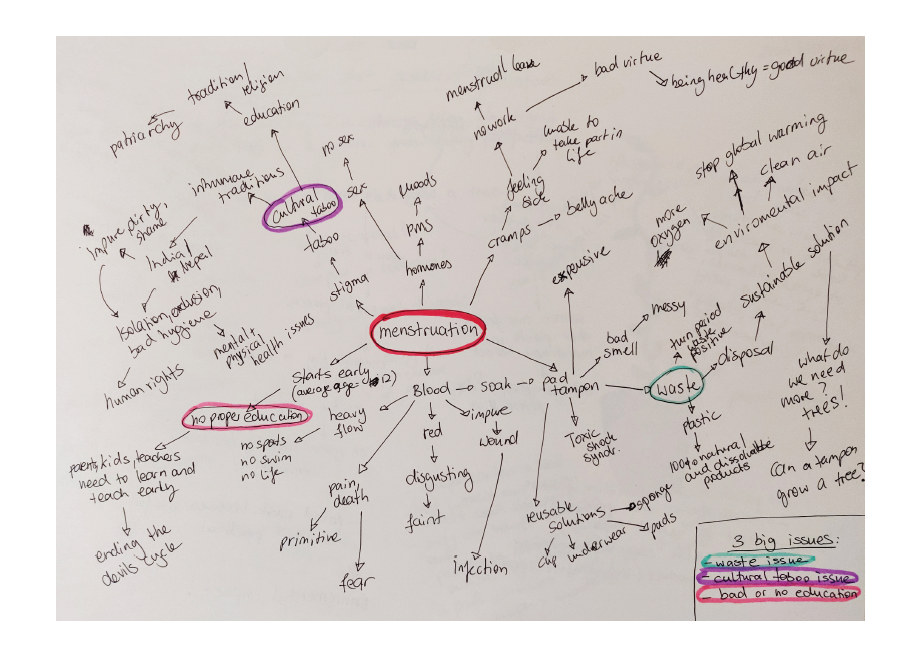 tradition/
religion
patriarchy
education
no sex
inhumane
traditions
sex
cultural
taboo
impure, dirty,
shame
India/
Nepal
taboo
stigma
Isolation, exclusion,
bad hygiene
mental +
physical
health issues
human rights
moods
pms
hormones
menstruall leave
no work
bad virtue
being healthy = good virtue
unable to
take part in
life
feeling
sick
belly ache
cramps
stop global warming
clean air
more
oxygen
enviromental impact
sustainable solution
menstruation
expensive
messy
bad
smell
turn period
waste
positive
disposal
waste
what do
we need
more?
trees!
can a tampon
grow a tree?
starts early
(average age = 12)
no proper education
parents, kids, teachers
need to learn and
teach early
ending the
devils cycle
Blood
soak
pad
tampon
heavy
flow
no sports
no swim
no life
red
impure
wound
disgusting
faint
pain,
death
primitive
fear
infection
Toxic
shock
syndr.
plastic
100% natural
and dissolvable
products
reusable
solutions
sponge
pads
underwear
cup
3 big issues:
- waste issue
- cultural taboo issue
- bad or no education